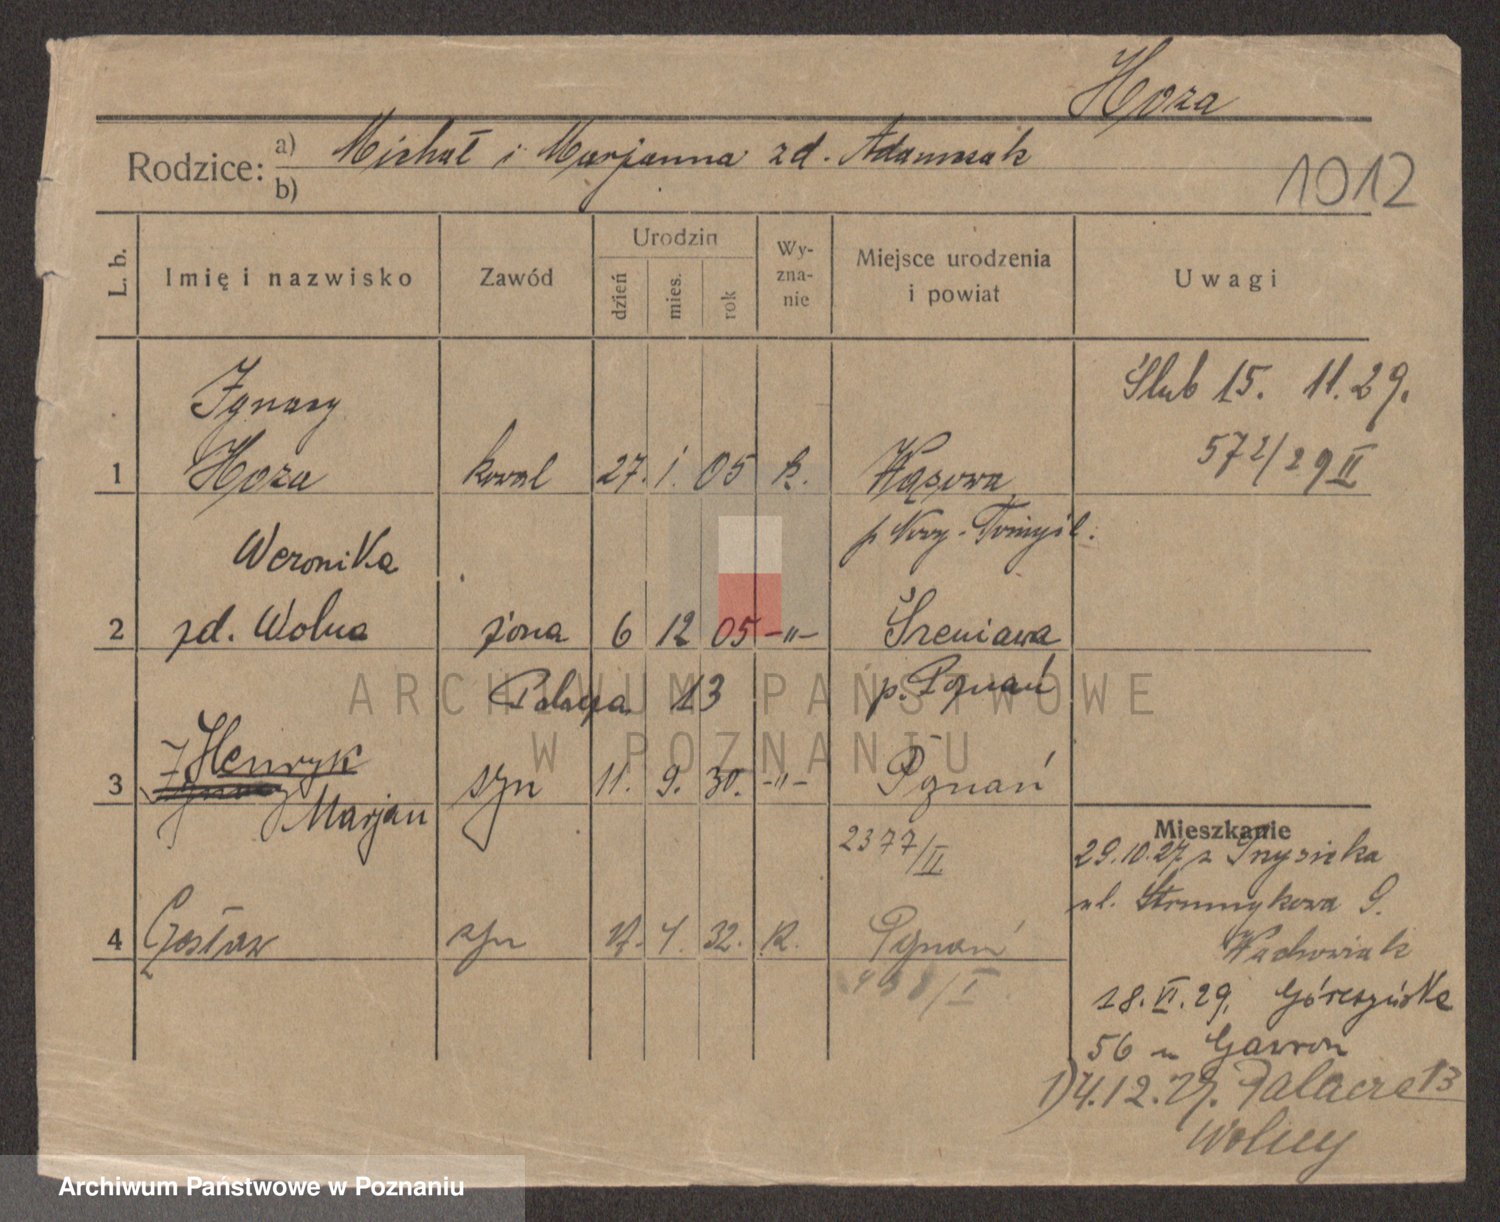 Hoza
Rodzice: a) Michał i Marjanna zd. Adamczak
b)
1012
L. b.
Imię i nazwisko
Zawód
Urodzin
dzień
mies.
rok
Wy-
zna-
nie
Miejsce urodzenia
i powiat
Uwagi
Ignacy
1 Hoza kowal 27. 1. 05 k. Wąsowa
p. Nowy-Tomyśl.
Ślub 15. 11. 29.
572/29 II
Weronika
2 zd. Wolna żona 6 12 05 -"- Sreniawa
p. Poznań
Palacza 13
Henryk
3 Ignacy syn 11. 9. 30. -"- Poznań
Marjan
2377/II
4 Czesław syn 17. 4. 32. k. Poznań
938/I
Mieszkanie
29.10.27 z
ul. Strumykowa 9.
Wachowiak
18. VI. 29.
56 u Gawron
1) 4.12.29. Palacza 13
Wolny
ARCHIWUM PAŃSTWOWE
W POZNANIU
Archiwum Państwowe w Poznaniu